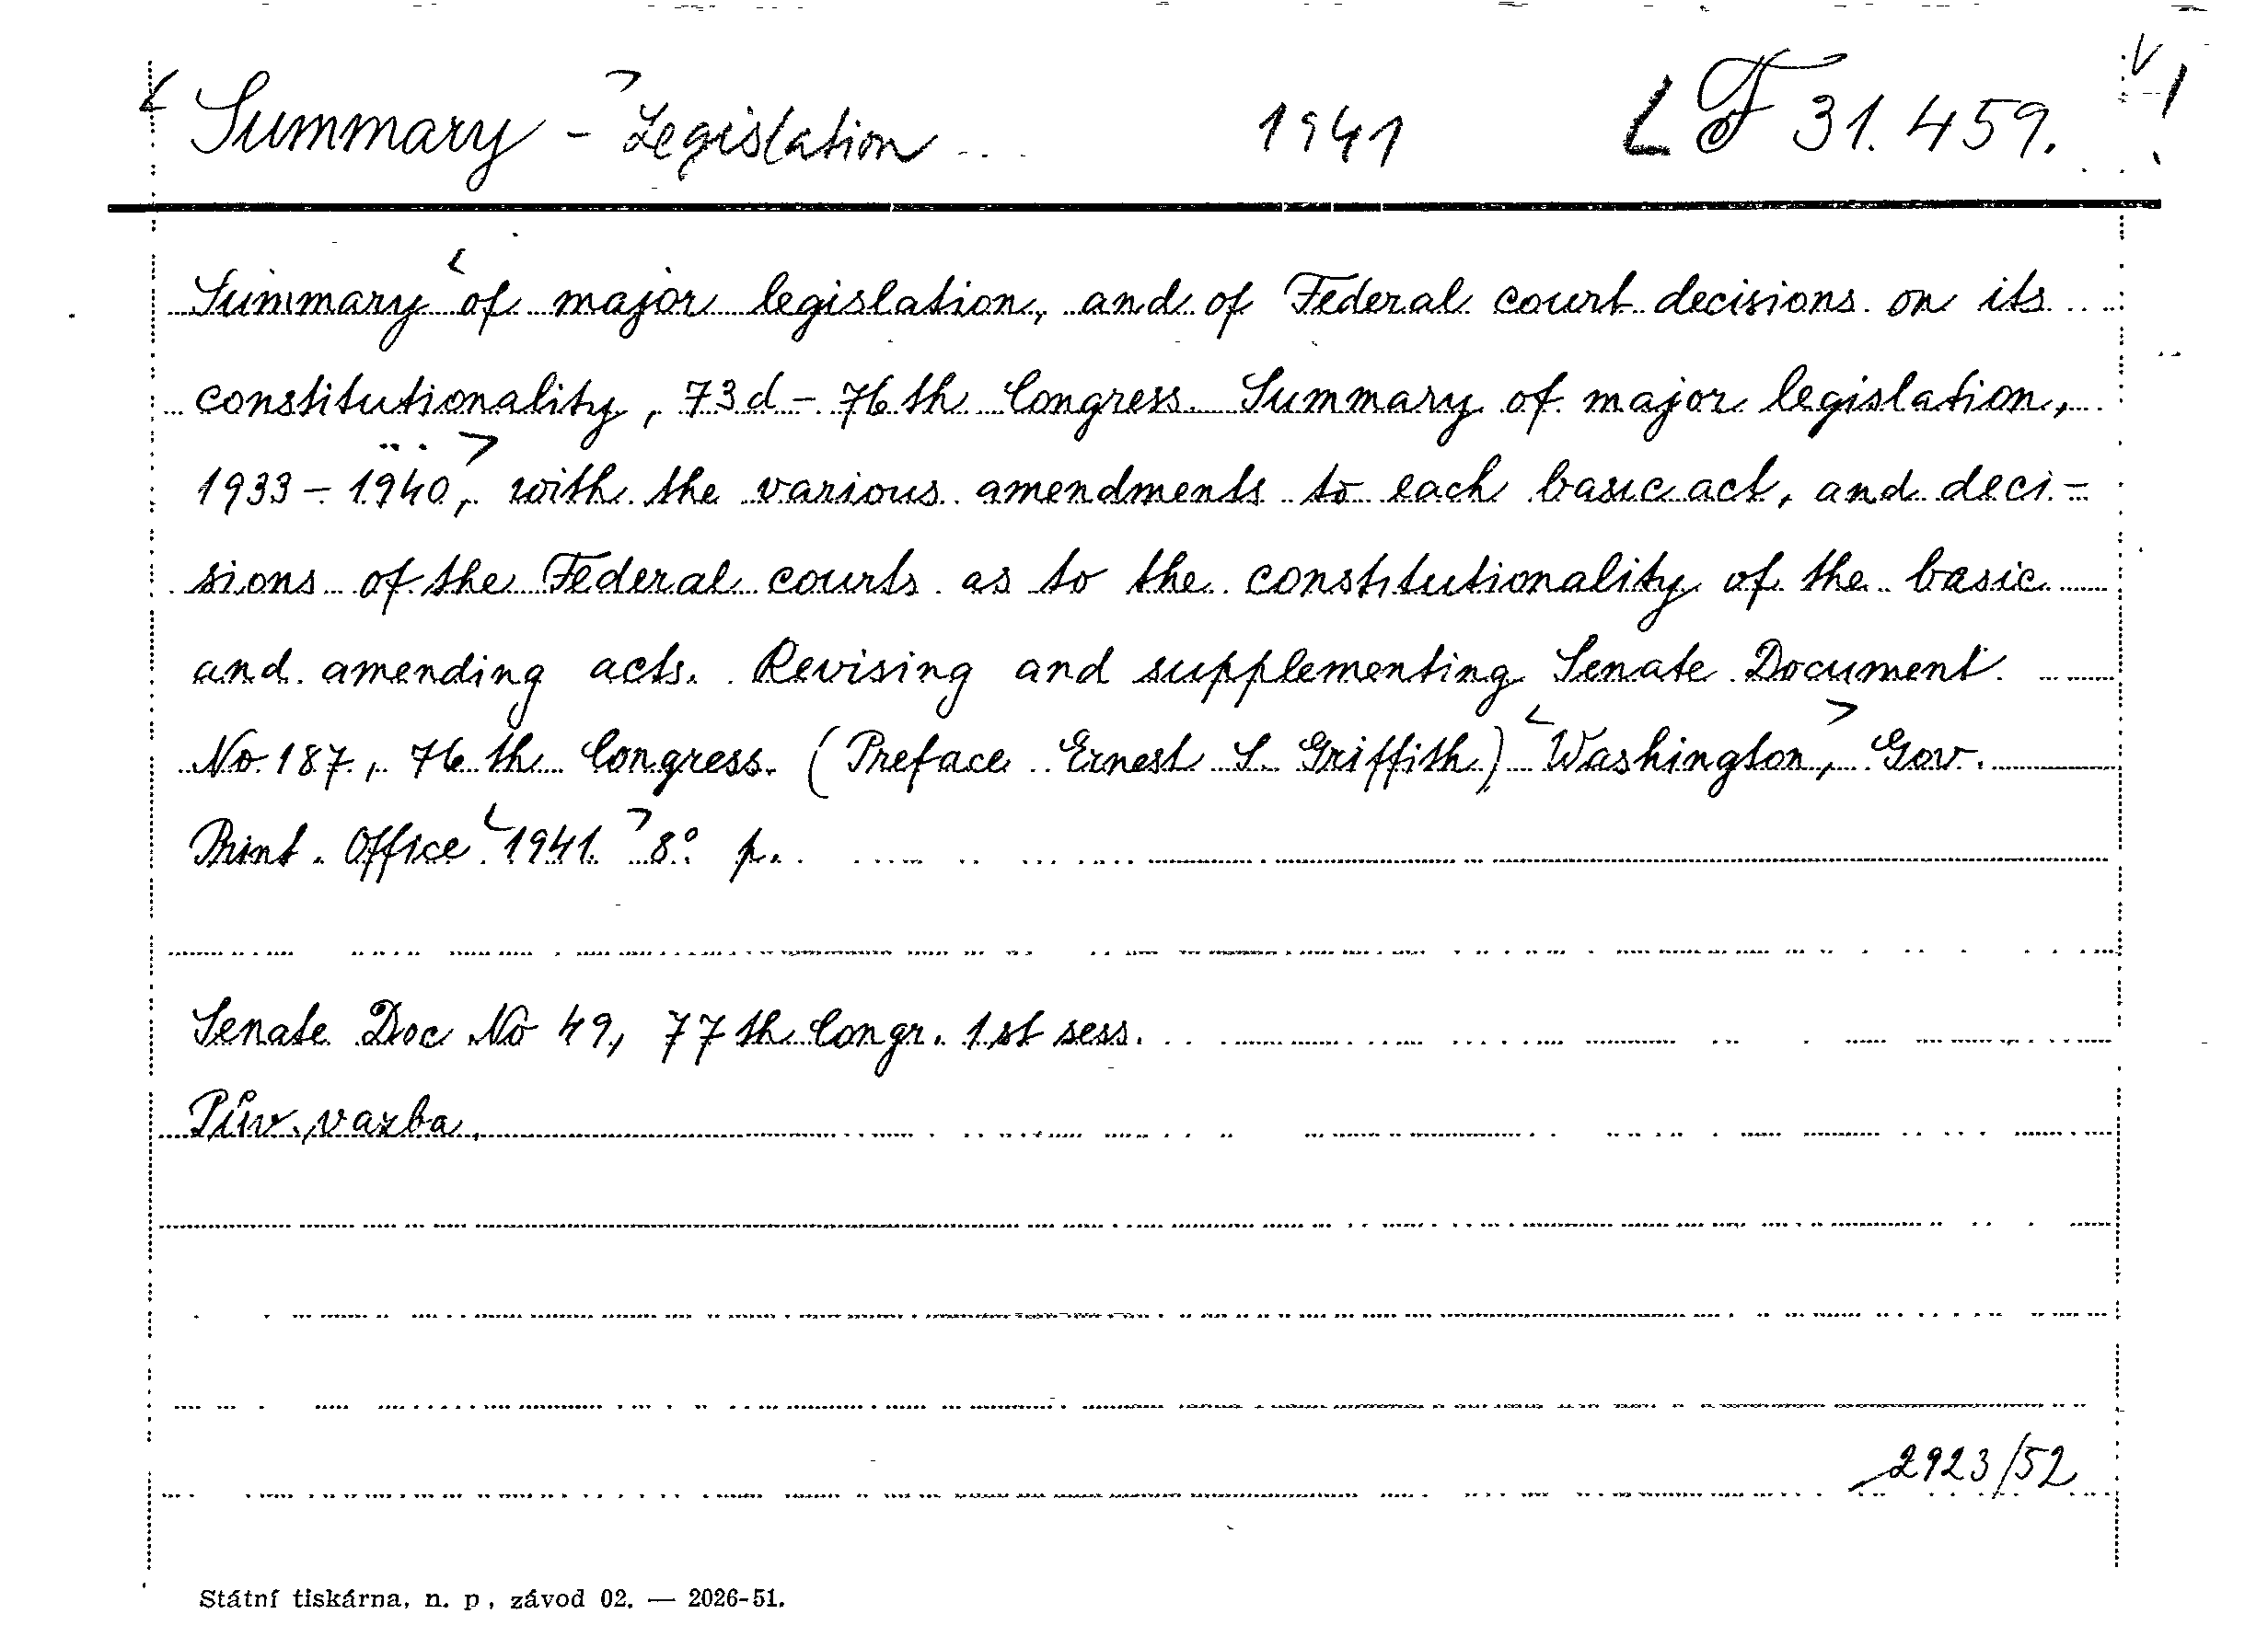 Summary - Legislation 1941 L F 31.459.
Summary of major legislation, and of Federal court decisions on its
constitutionality, 73d - 76th Congress. Summary of major legislation,
1933 - 1940, with the various amendments to each basic act, and deci-
sions of the Federal courts as to the constitutionality of the basic
and amending acts. Revising and supplementing Senate Document
No 187, 76th Congress. (Preface Ernest S. Griffith) Washington, Gov.
Print. Office 1941. 8° p.
Senate Doc No 49, 77th Congr. 1st sess.
Pův. vazba.
2923/52
Státní tiskárna, n. p., závod 02. — 2026-51.